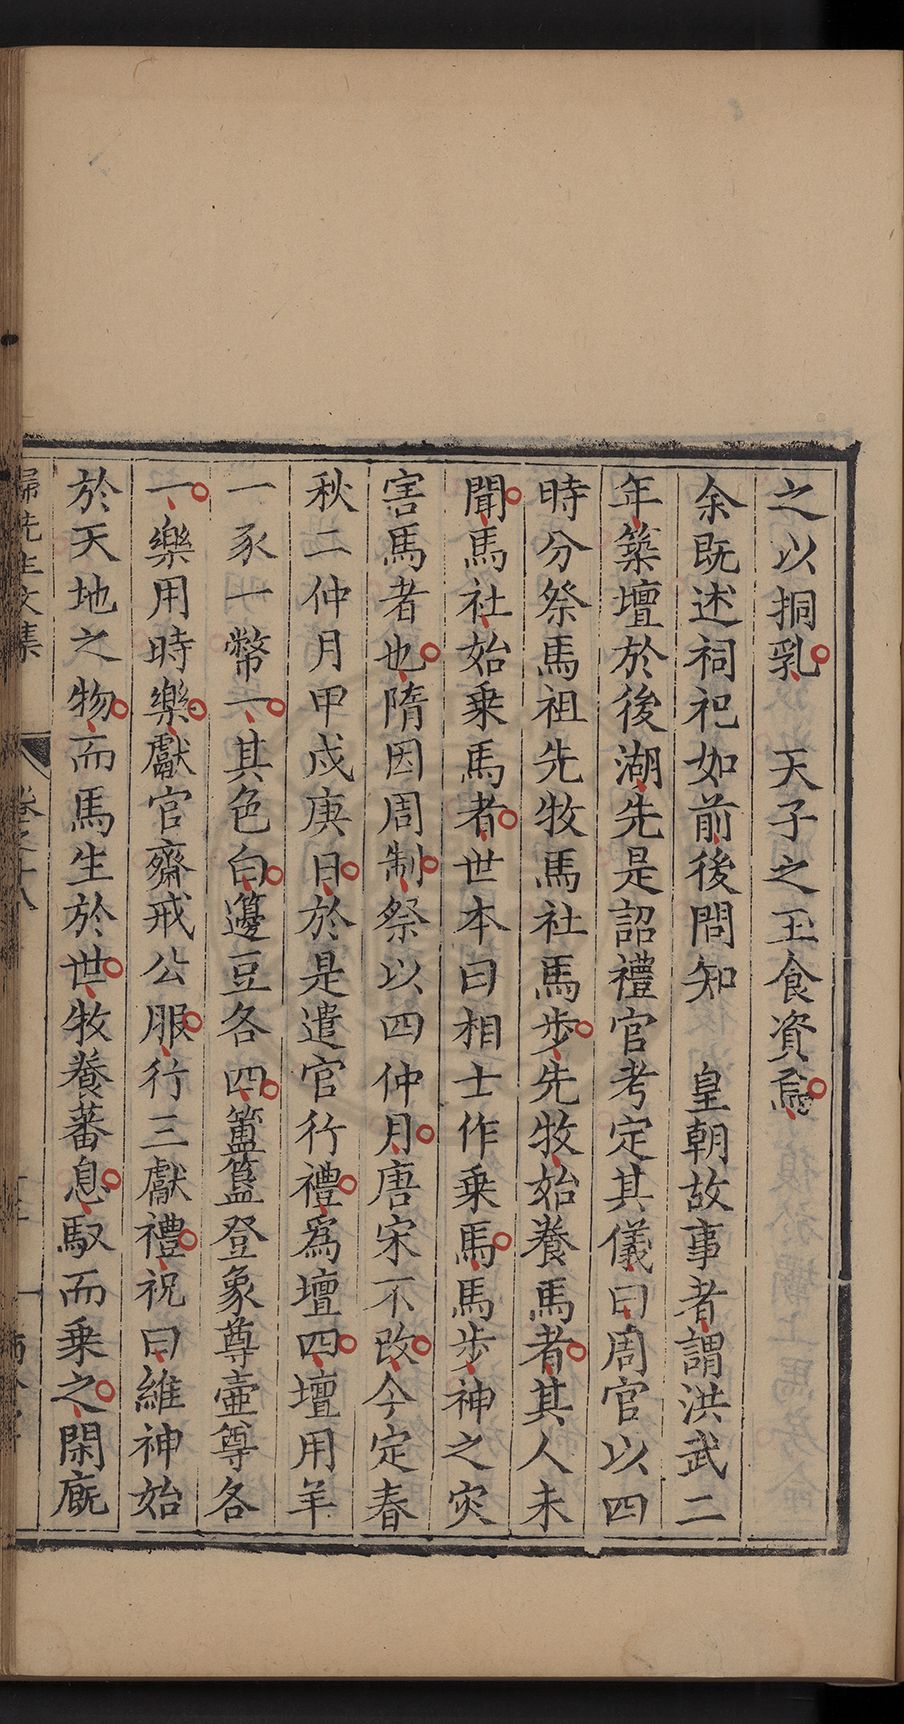 之以挏乳　天子之玉食資焉
余既述祠祀如前後問知　皇朝故事者謂洪武二
年築壇於後湖先是詔禮官考定其儀曰周官以四
時分祭馬祖先牧馬社馬步先牧始養馬者其人未
聞馬社始乗馬者世本曰相士作乗馬馬步神之灾
害馬者也隋因周制祭以四仲月唐宋不改今定春
秋二仲月甲戍庚日於是遣官行禮爲壇四壇用羊
一豕一幣一其色白籩豆各四簠簋登象尊壷尊各
一樂用時樂獻官齋戒公服行三獻禮祝曰維神始
於天地之物而馬生於世牧養蕃息馭而乗之閑廐
歸先生文集　卷之十八